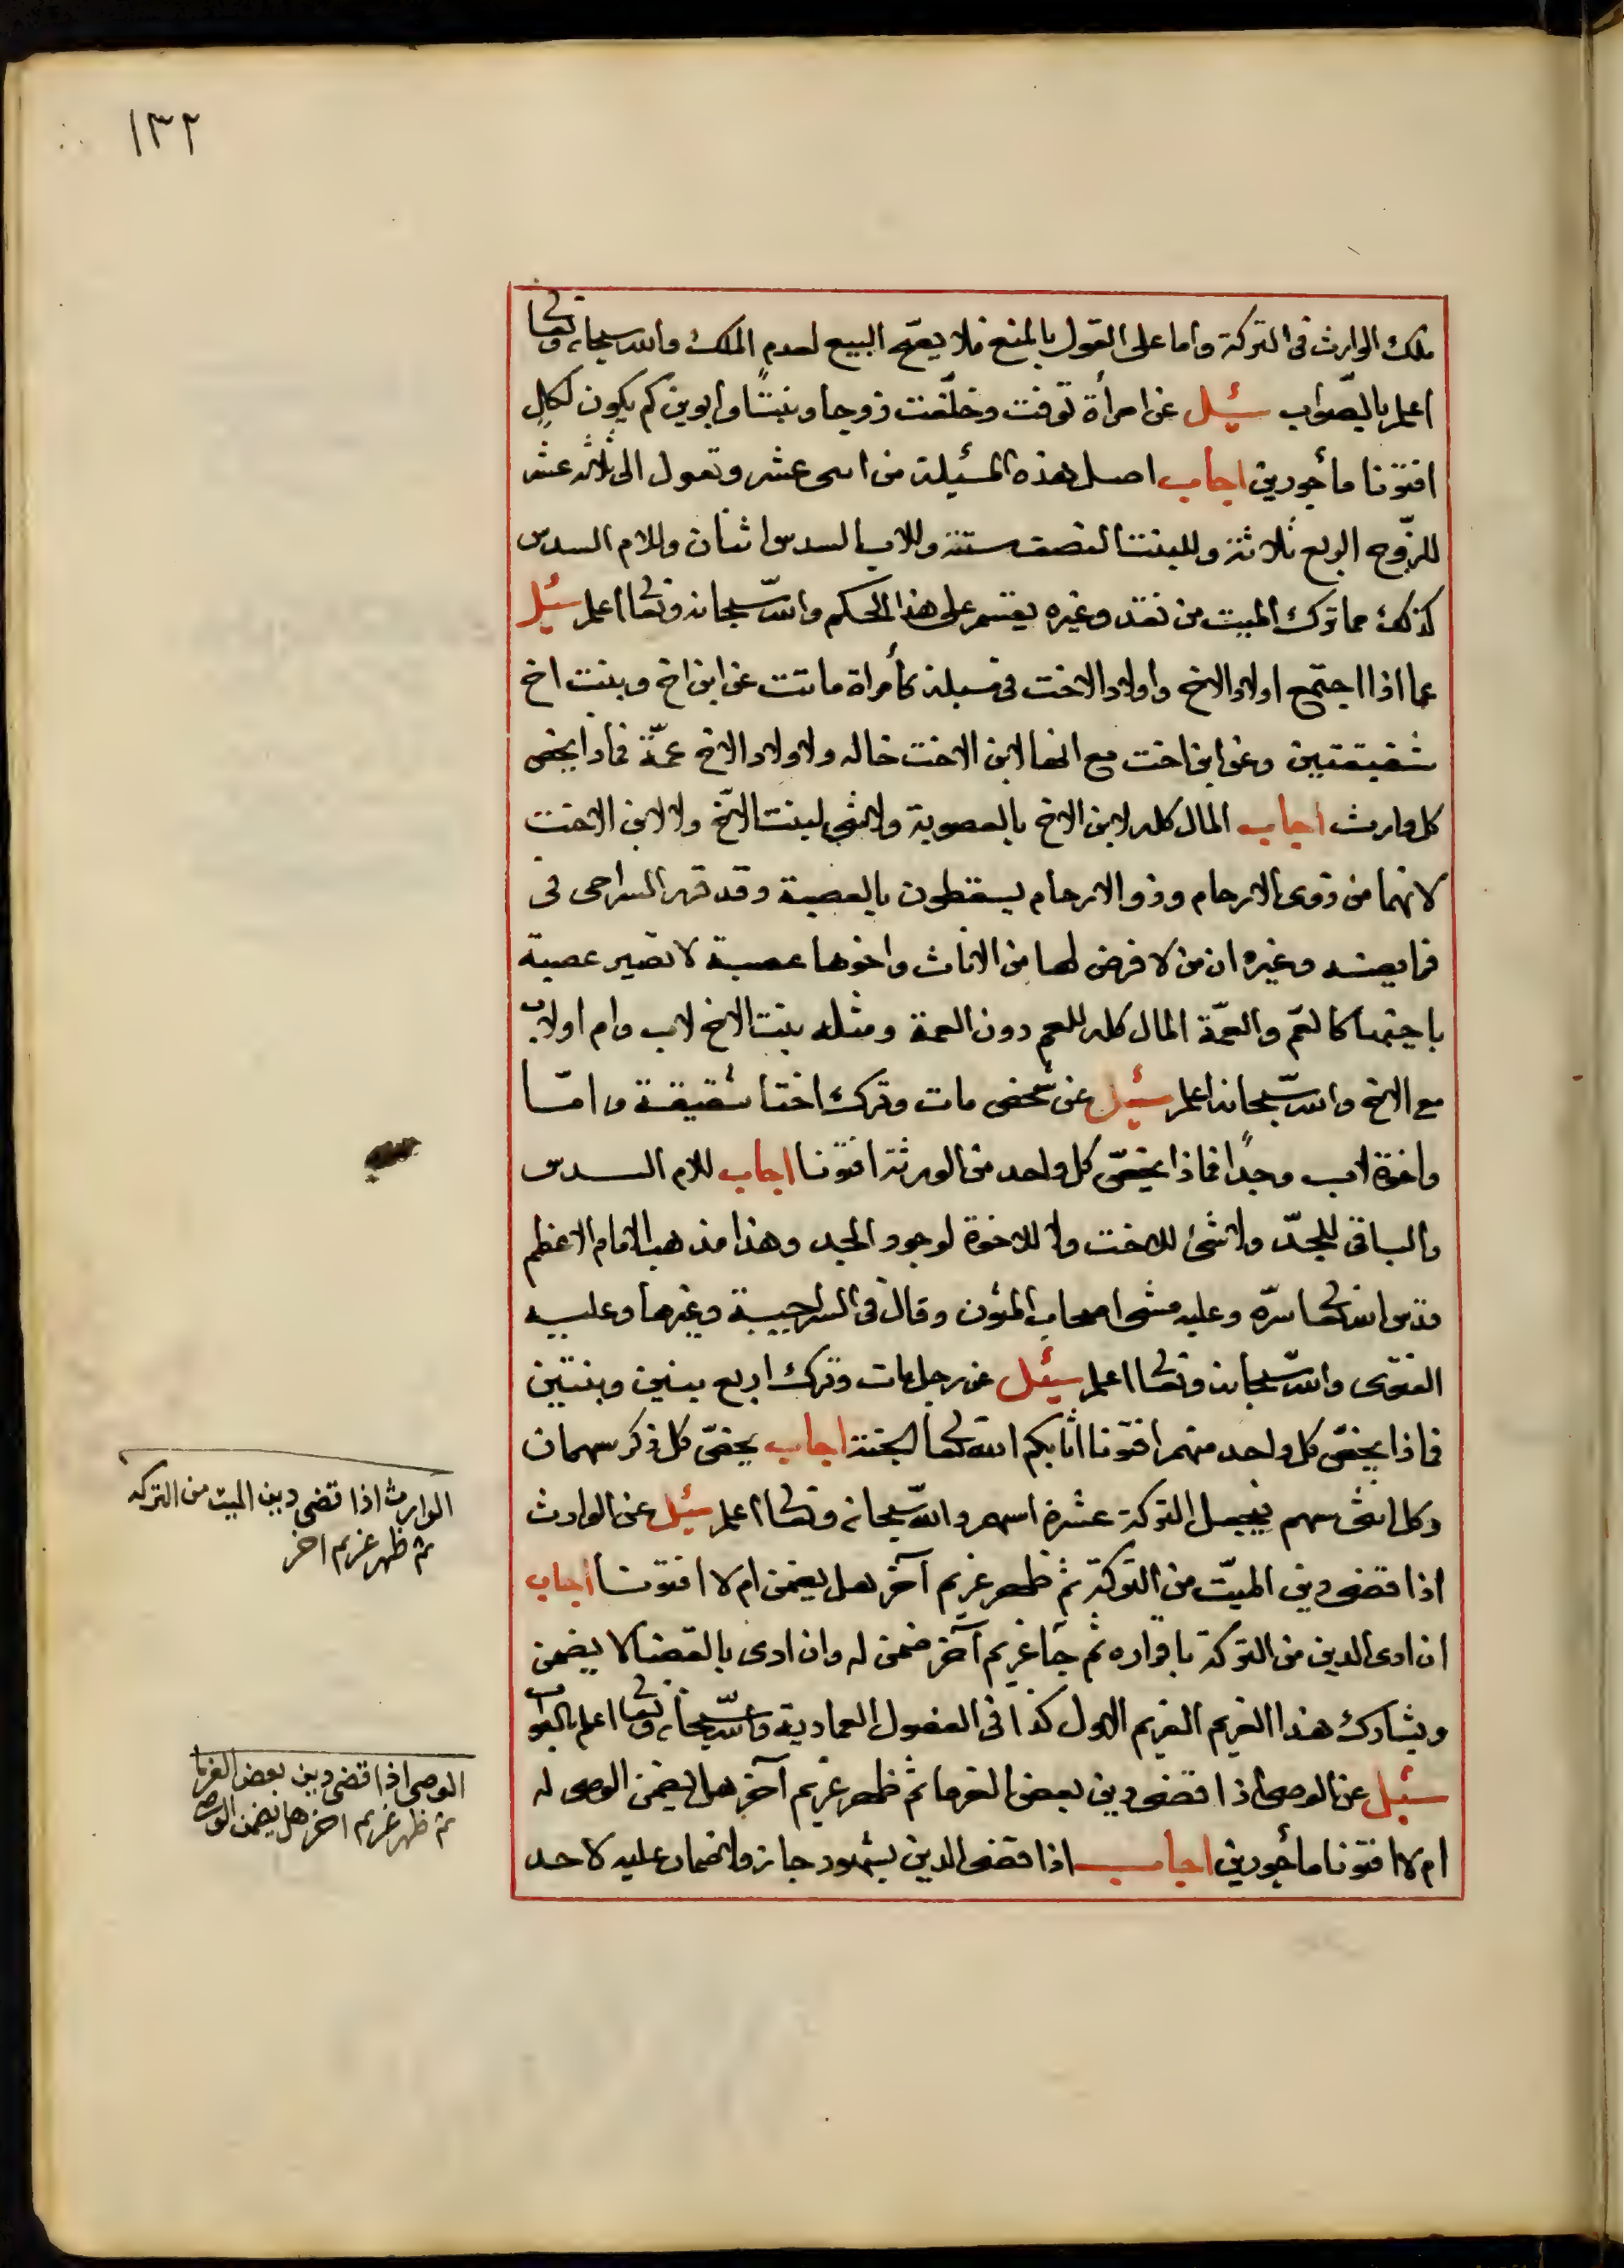 ١٣٢
ملك الوارث فى التركة واما على القول بالمنع فلا يصح البيع لعدم الملك والله سبحانه وتعا
اعلم بالصّواب سئيل عن امرأة توفت وخلّفت زوجا وبنتًا وابوين كم يكون لكلٍ
افتونا مأجورين اجاب اصل هذه المسئيلة من اثنى عشر وتعول الى ثلاثة عشر
للزّوج الربع ثلاثة وللبنت النصف ستة وللاب السدس اثنان وللام السدس
كذلك مما ترك الميت من نقد وغيره يقسم على هذا الحكم والله سبحانه وتعا اعلم سئيل
عما اذا اجتمع اولاد الاخ واولاد الاخت فى مسئلة كأمراة ماتت عن ابن اخ وبنت اخ
شقيقتين وعن ابن اخت مع انها لابن الاخت خاله ولاولاد الاخ عمّة فماذا يخص
كل وارث اجاب المال كله لابن الاخ بالعصوبة ولا شى لبنت الاخ ولا لابن الاخت
لانهما من ذوى الارحام وذو الارحام يسقطون بالعصبة وقد قرر السراجى فى
فرايضه وغيره ان من لا فرض لها من الاناث واخوها عصبة لا تصير عصبة
باخيها كالعم والعمّة المال كله للعم دون العمة ومثله بنت الاخ لاب وام اولاب
مع الاخ والله سبحانه اعلم سئيل عن شخص مات وترك اختا شقيقة وامّا
واخوة لاب وجدًا فماذا يخصّ كل واحد من الورثة افتونا اجاب للام السدس
والباقى للجدّ ولا شئ للاخت ولا للاخوة لوجود الجد وهذا مذهب الامام الاعظم
قدس الله تعا سرّه وعليه مشى اصحاب المتون وقال فى السراجية وغيرها وعليه
الفتوى والله سبحانه وتعا اعلم سئيل عن رجل مات وترك اربع بنين وبنتين
فماذا يخصّ كل واحد منهم افتونا اثابكم الله تعا الجنة اجاب يخصّ كل ذكر سهمان
وكل انثى سهم فيجعل التركة عشرة اسهم والله سبحانه وتعا اعلم سئيل عن الوارث
اذا قضى دين الميّت من التركة ثم ظهر غريم آخر هل يضمن ام لا افتونا اجاب
ان ادى الدين من التركة باقراره ثم جآ غريم آخر ضمن له وان ادى بالقضا لا يضمن
ويشارك هذا الغريم الغريم الاول كذا فى الفصول العمادية والله سبحانه وتعا اعلم بالصواب
سئيل عن الوصى اذا قضى دين بعض الغرما ثم ظهر غريم آخر هل يضمن الوصى له
ام لا افتونا مأجورين اجاب اذا قضى الدين بشهود جاز ولا ضمان عليه لاحد
الوارث اذا قضى دين الميت من التركه
ثم ظهر غريم اخر
الوصى اذا قضى دين بعض الغرما
ثم ظهر غريم اخر هل يضمن الوصى